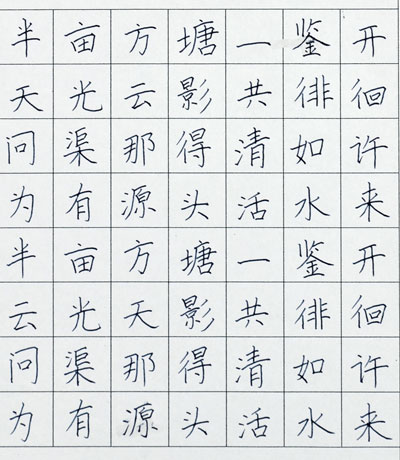 半亩方塘一鉴开
天光云影共徘徊
问渠那得清如许
为有源头活水来
半亩方塘一鉴开
云光天影共徘徊
问渠那得清如许
为有源头活水来